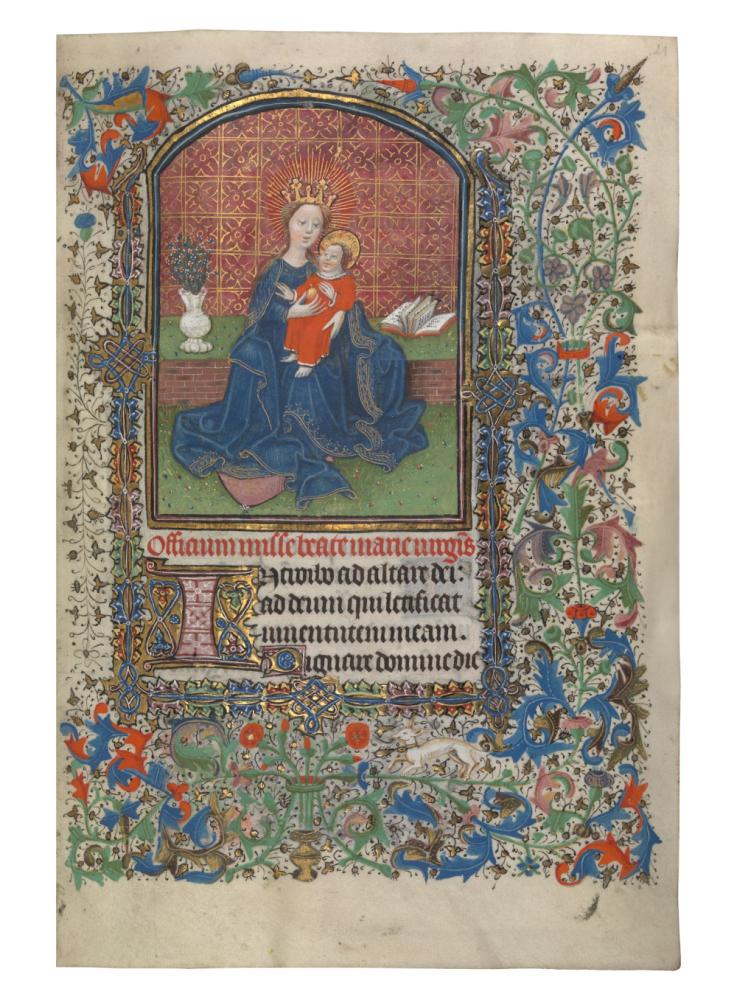 21
Officium misse beate marie virgīs
INtroibo ad altare dei:
ad deum qui letificat
iuuentutem meam.
Dignare domine die